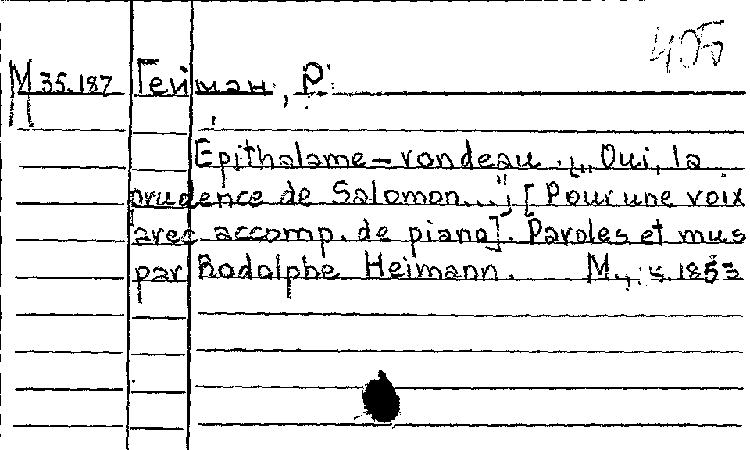 405
М 35.187 Гейман, Р.
Épithalame-rondeau. „Oui, la
prudence de Salomon..." [Pour une voix
avec accomp. de piano]. Paroles et mus
par Rodolphe Heimann. M., 1853